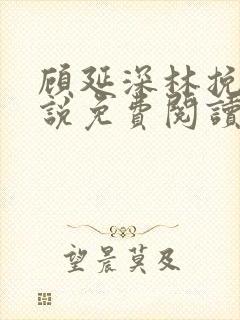 顾延深林挽
說免費閱讀
望晨莫及